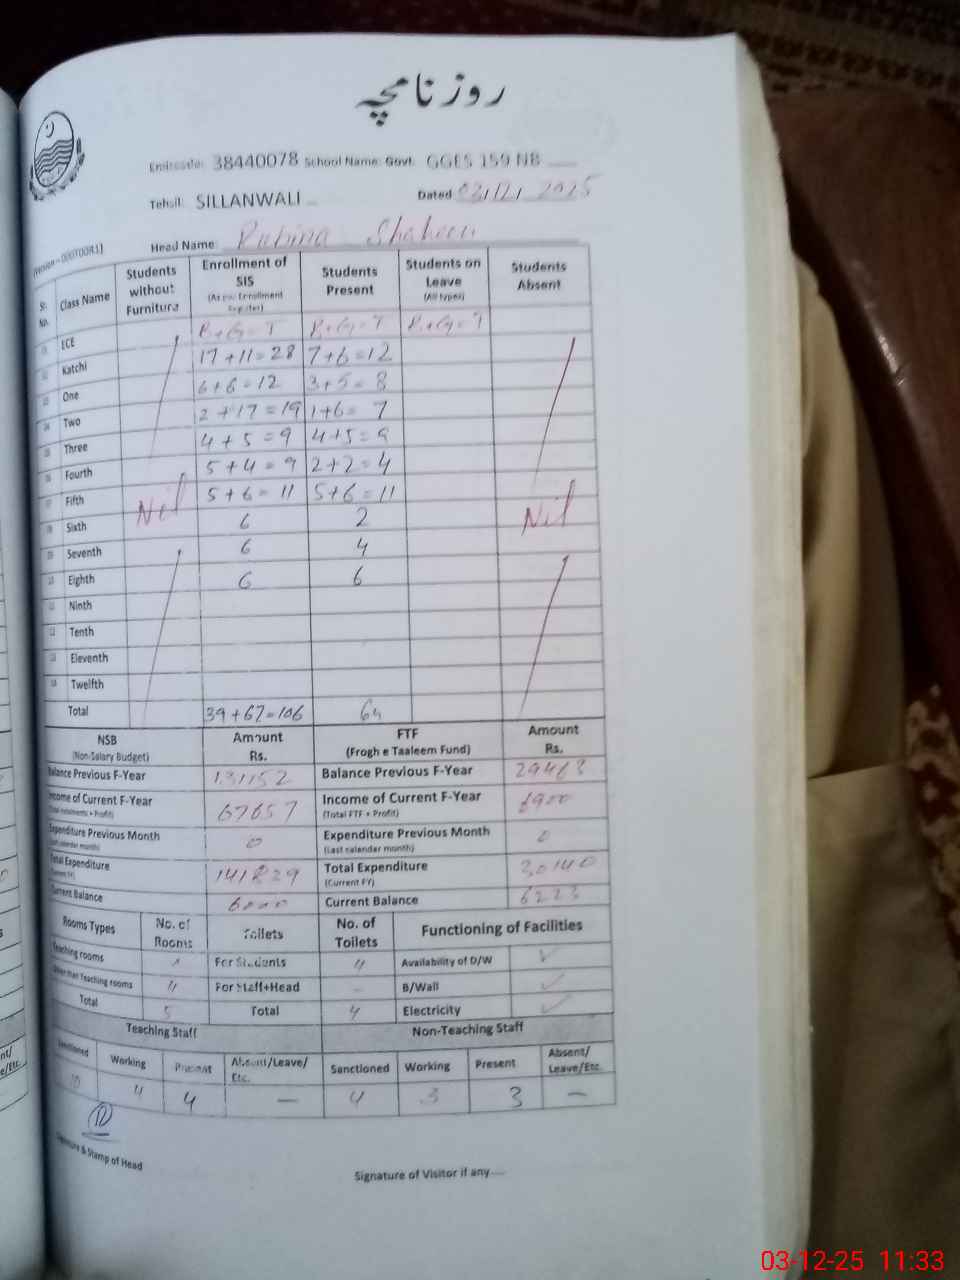 روزنامچہ
Emiscode: 38440078 School Name: Govt. GGES 159 NB
Tehsil: SILLANWALI Dated 03/12/ 2025
Head Name: Rubina Shaheen
Sr. No. Class Name Students without Furniture Enrollment of SIS (As per Enrollment Register) Students Present Students on Leave (All types) Students Absent
ECE B+G=T B+G=T B+G=T
Katchi 17+11=28 7+6=12
One 6+6=12 3+5=8
Two 2+17=19 1+6=7
Three 4+5=9 4+5=9
Fourth 5+4=9 2+2=4
Fifth Nil 5+6=11 5+6=11 Nil
Sixth 6 2
Seventh 6 4
Eighth 6 6
Ninth
Tenth
Eleventh
Twelfth
Total 39+67=106 64
NSB (Non-Salary Budget) Amount Rs. FTF (Frogh e Taaleem Fund) Amount Rs.
Balance Previous F-Year 131152 Balance Previous F-Year 29463
Income of Current F-Year 67657 Income of Current F-Year (Total FTF + Profit) 6900
Expenditure Previous Month 0 Expenditure Previous Month (Last calander month) 0
Total Expenditure 141829 Total Expenditure (Current FY) 30140
Current Balance Current Balance 6223
Rooms Types No. of Rooms Toilets No. of Toilets Functioning of Facilities
Teaching rooms For Students 4 Availability of D/W ✓
Other than Teaching rooms 4 For Staff+Head - B/Wall ✓
Total 5 Total 4 Electricity ✓
Teaching Staff Non-Teaching Staff
Sanctioned Working Present Absent/Leave/Etc. Sanctioned Working Present Absent/Leave/Etc.
10 4 4 — 4 3 3 —
Signature & Stamp of Head
Signature of Visitor if any
03-12-25 11:33